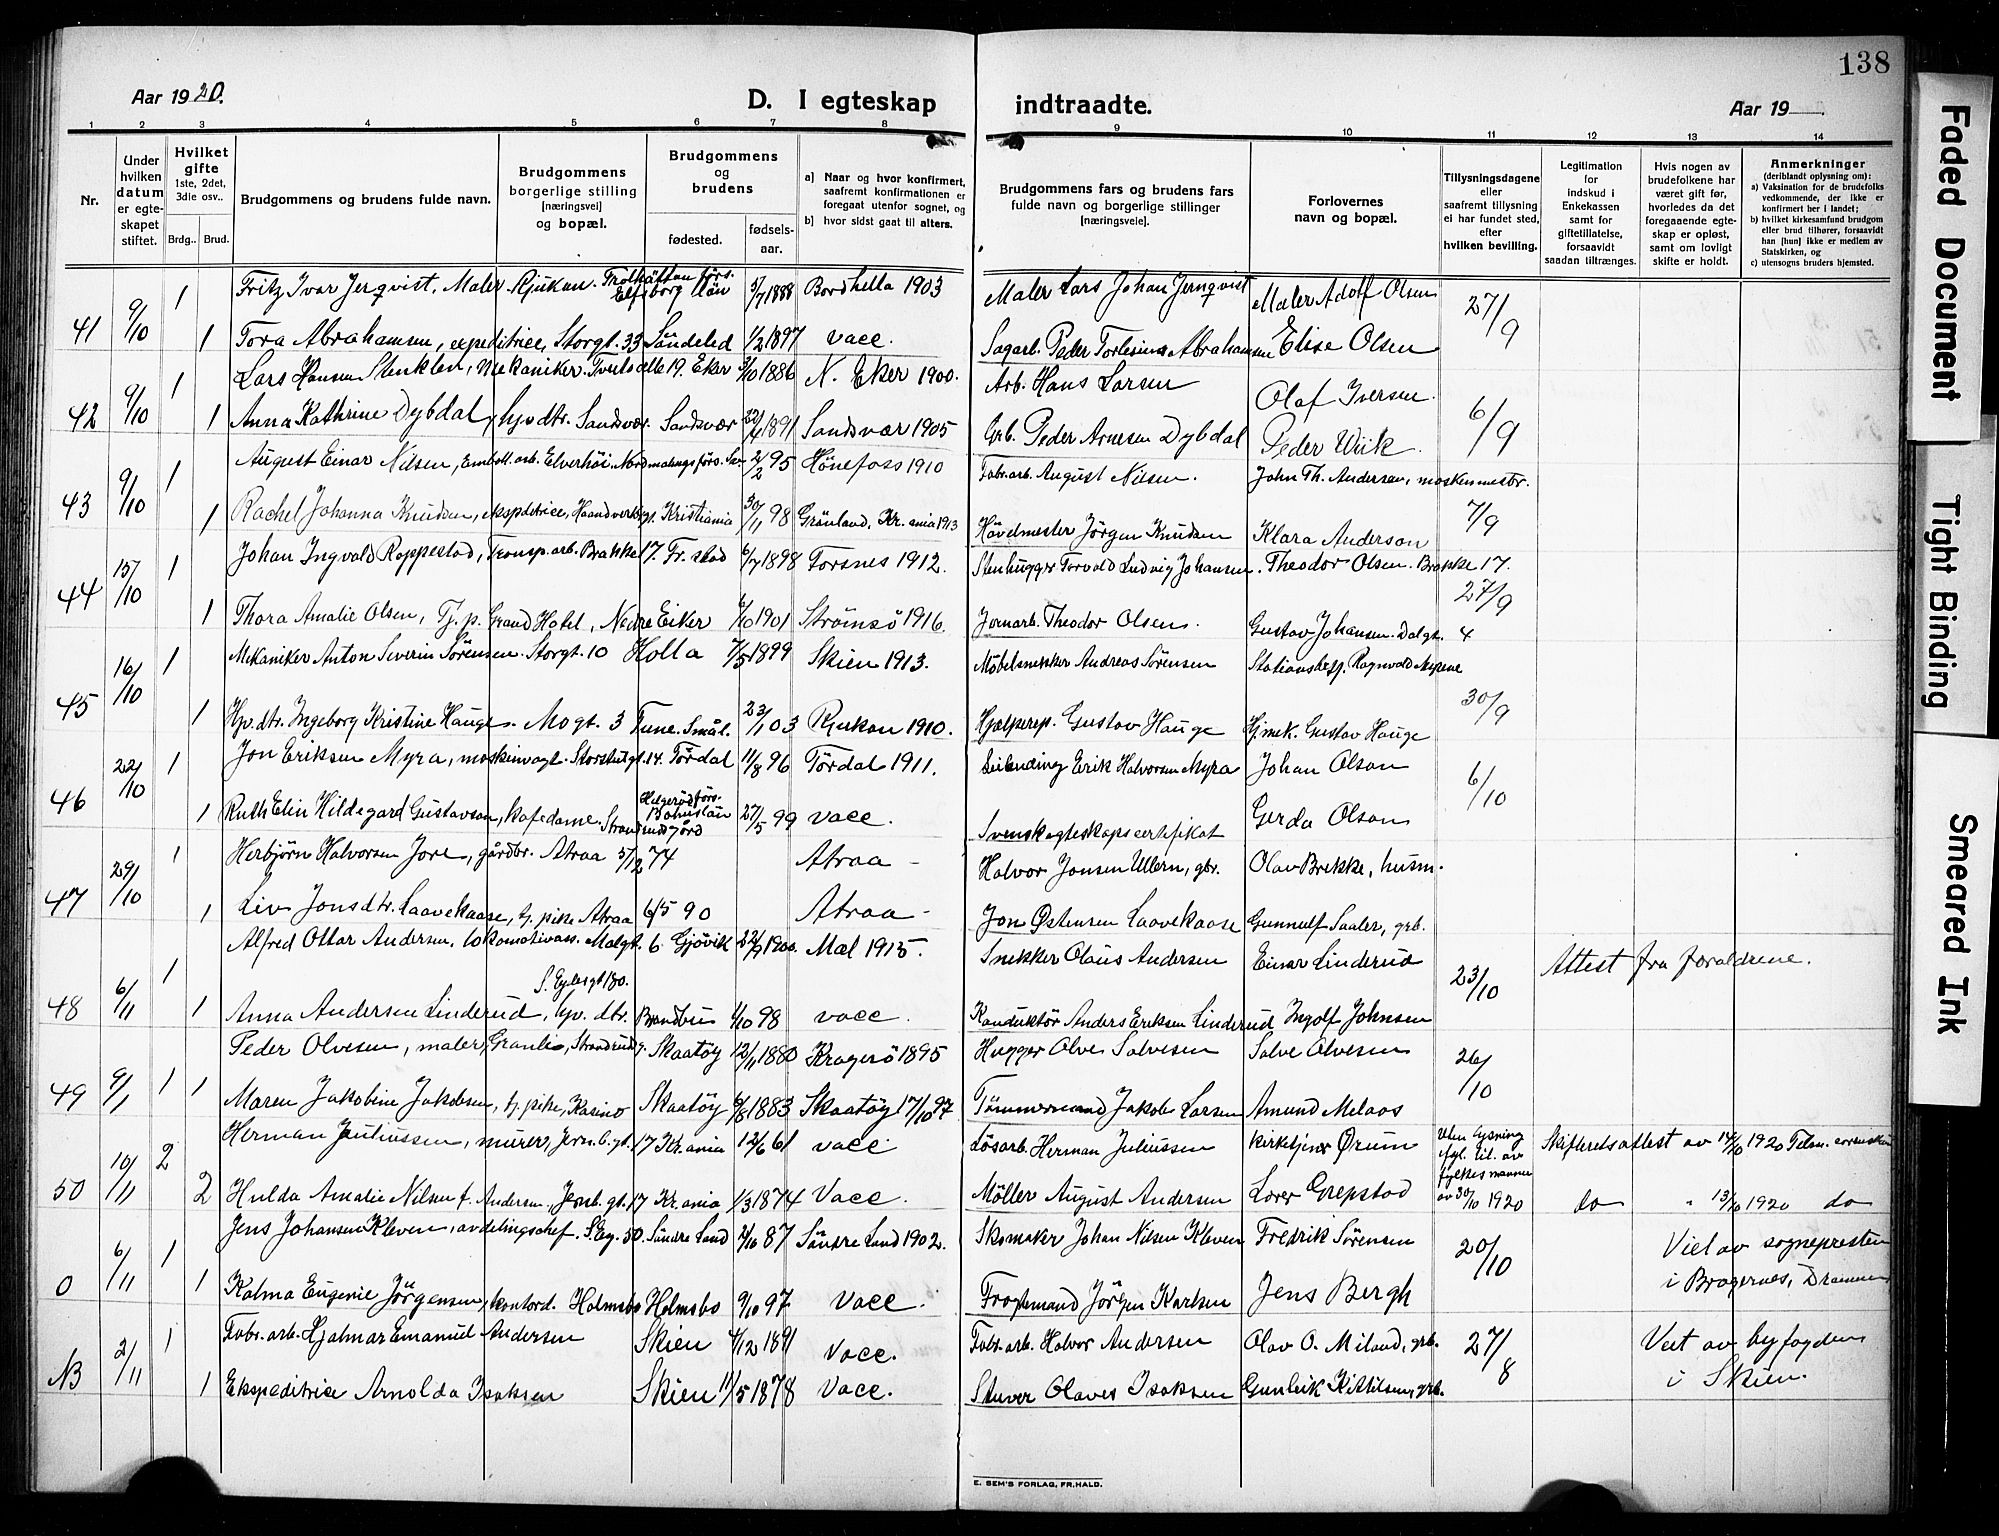 138
Aar 1920.
D. I egteskap indtraadte.
Aar 19
1 2 3 4 5 6 7 8 9 10 11 12 13 14
Nr.
Under hvilken datum er egteskapet stiftet.
Hvilket gifte 1ste, 2det, 3die osv..
Brdg.. Brud.
Brudgommens og brudens fulde navn.
Brudgommens borgerlige stilling [næringsvei] og bopæl.
Brudgommens og brudens
fødested. fødselsaar.
a) Naar og hvor konfirmert, saafremt konfirmationen er foregaat utenfor sognet, og
b) hvor sidst gaat til alters.
Brudgommens fars og brudens fars fulde navn og borgerlige stillinger [næringsveie].
Forlovernes navn og bopæl.
Tillysningsdagene eller saafremt tillysning ei har fundet sted, efter hvilken bevilling.
Legitimation for indskud i Enkekassen samt for giftetillatelse, forsaavidt saadan tiltrænges.
Hvis nogen av brudefolkene har været gift før, hvorledes da det foregaaende egteskap er opløst, samt om lovlig skifte er holdt.
Anmerkninger (deriblandt oplysning om):
a) Vaksination for de brudefolks vedkommende, der ikke er konfirmert her i landet;
b) hvilket kirkesamfund brudgom eller brud tilhører, forsaavidt han [hun] ikke er medlem av Statskirken, og
c) utensogns bruders hjemsted.
41 9/10 1 Fritz Ivar Jerqvist, Maler Rjukan. Trolhättan förs. Elfsborg län 5/7 1888 Bordhella 1903 Maler Lars Johan Jernqvist Maler Adolf Olsen 27/9
1 Tora Abrahamsen, expeditrice, Storgt. 33 Söndeled 1/2 1897 vacc. Sagarb. Peder Torlesius Abrahamsen Elise Olsen
42 9/10 1 Lars Hansen Stenklev, Mekaniker. Tveito alle 19. Eker 3/10 1886 N. Eker 1900. Arb. Hans Larsen Olaf Iversen 6/9
1 Anna Kathrine Dybdal, hjv. dtr. Sandsvær. Sandsvær 22/4 1891 Sandsvær 1905 Grb. Peder Arnesen Dybdal Peder Wiik
43 9/10 1 August Einar Nilsen, Emball. arb. Elverhöi. Nordmalings förs. Sv. 2/2 95 Hönefoss 1910 Fabr. arb. August Nilsen. John Th. Andersen, maskinmestr. 7/9
1 Rachel Johanna Knudsen, ekspeditrice, Haandverksgt. Kristiania 30/11 98 Grönland, Kr.ania 1913 Hövelmester Jörgen Knudsen Klara Anderson
44 15/10 1 Johan Ingvald Roppestad, Transp. arb. Brakke 17. Fr.stad 6/7 1898 Torsnes 1912. Stenhugger Torvald Ludvig Johansen. Theodor Olsen. Brakke 17. 27/9
1 Thora Amalie Olsen, Tj. p. Grand Hotel, Nedre Eiker 6/10 1901 Strömsö 1916. Jernarb. Theodor Olsen. Gustav Johansen. Dalgt. 4
45 16/10 1 Mekaniker Anton Severin Sörensen. Storgt. 10 Holla 7/5 1899 Skien 1913. Möbelsnekker Andreas Sörensen Stationsbesj. Ragnvald Myrene 30/9
1 Hjv. dtr. Ingeborg Kristine Hauge. Mogt. 3 Tune. Smål. 23/1 03 Rjukan 1910. Hjælperep. Gustav Hauge Hj. mek. Gustav Hauge
46 22/10 1 Jon Eriksen Myra, maskinvagt. Storstulgt. 14. Tördal 11/8 96 Tördal 1911. Erik Halvorsen Myra Johan Olson 6/10
1 Ruth Elin Hildegard Gustavson, kafedame. Strandrudsjord Bohuslän 27/5 99 vacc. Svensk egteskapscertifikat Gerda Olson
47 29/10 1 Herbjörn Halvorsen Jore, gårdbr. Atraa 5/12 74 Atraa – Halvor Jonsen Ullern, gbr. Olav Brekke, husm.
1 Liv Jonsdtr. Laavekaase, tj. pike Atraa 6/5 90 Atraa – Jon Østensen Laavekaase Gunnulf Saaler, grb.
48 6/11 1 Alfred Ottar Andersen, lokomotivass. Målgt. 6. Gjövik 22/9 1900. Mæl 1915. Snekker Olaus Andersen Einar Linderud 23/10 Attest fra foraldrene.
1 Anna Andersen Linderud, hjv. dtr. S. Eydesgt 180. Brandbu 1/10 98 vacc. Konduktör Anders Eriksen Linderud Ingolf Johnsen
49 9/1 1 Peder Olvesen, maler, Granli, Strandrudg. Skaatöy 12/11 1880 Kragerö 1895 Hugger Olve Salvesen Salve Olvesen 26/10
1 Maren Jakobine Jakobsen, tj. pike, Kasino Skaatöy 6/8 1883 Skaatöy 17/10 97 Tömmermand Jakob Larsen Amund Melaas
50 10/11 2 Herman Juliussen, murer, Jernb. gt. 17 Kr.ania 12/6 61 vacc. Lösarb. Herman Juliussen Kirketjener Ørum Uten lysning ifgl. til. av fylkesmannen av 30/10 1920 Skifteretsattest av 14/10 1920 Telm.
2 Hulda Amalie Nilsen f. Andersen, Jernb. gt. 17 Kr.ania 1/3 1874 Vacc. Möller August Andersen Lærer Grepstad do " 13/10 1920 do
0 6/11 1 Jens Johansen Kleven, avdelingschef. S. Ey. 50. Söndre Land 2/10 87 Söndre Land 1902. Skomaker Johan Nilsen Kleven Fredrik Sörensen 20/10 Viet av sognepresten i Bragernes, Drammen
1 Kalma Eugenie Jörgensen, kontord. Holmsbo Holmsbo 9/10 97 Vacc. Fragtemand Jörgen Karlsen Jens Bergh
NB 2/11 1 Fabr. arb. Hjalmar Emanuel Andersen Skien 4/12 1891 Vacc. Fabr. arb. Halvor Andersen Olav O. Miland, grb. 27/8 Viet av byfogden i Skien.
1 Ekspeditrice Arnolda Isaksen Skien 11/5 1878 Vacc. Stuver Olaves Isaksen Gunleik Kittilsen, grb.
E. SEM'S FORLAG, FR.HALD.
Faded Document
Tight Binding
Smeared Ink